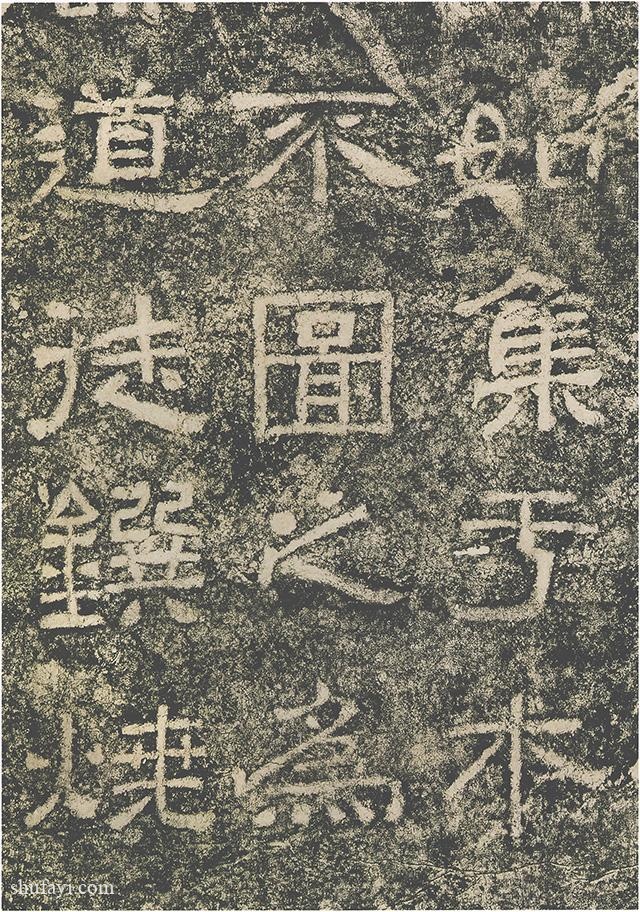 如集于木
不圖之為
道徒鐉燒
shufayi.com